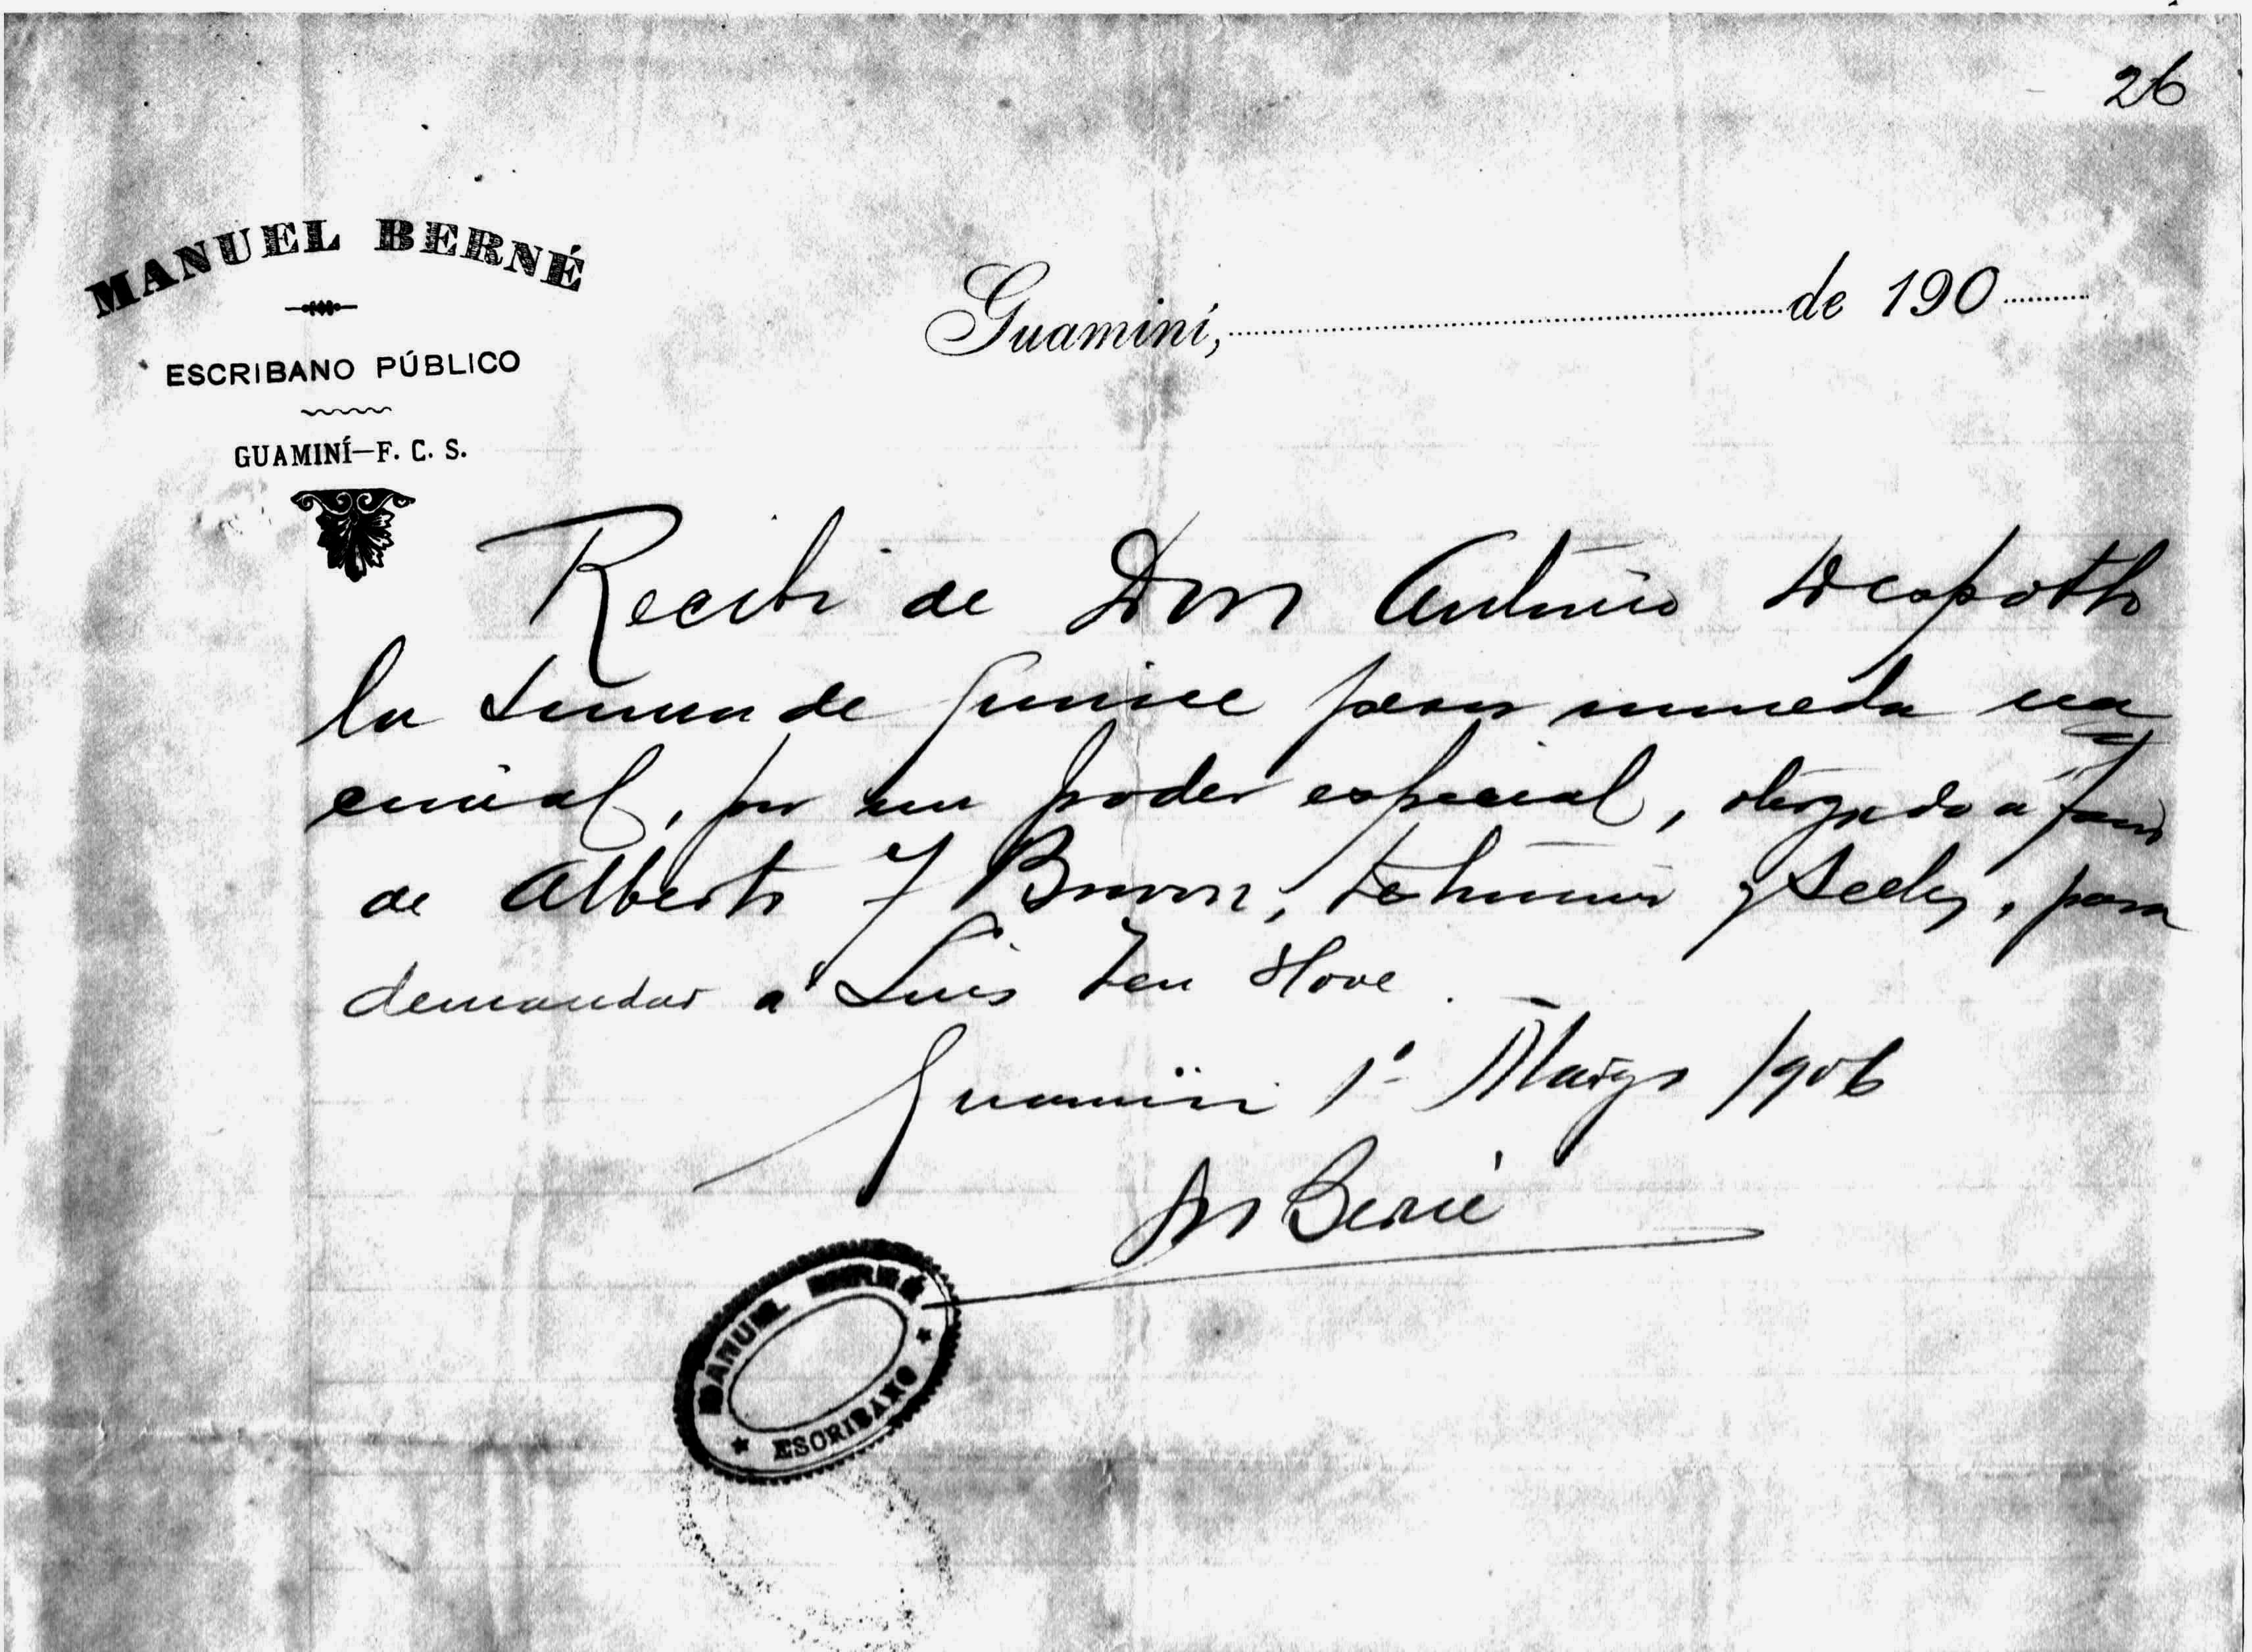 26
MANUEL BERNÉ
ESCRIBANO PÚBLICO
GUAMINÍ—F. C. S.
Guaminí, de 190
Recibi de Don Antonio
la suma de quince pesos moneda na
cional, por un poder especial, otorgado a favor
de Alberto J Brown, testimonio y sellos, para
demandar a Luis Ten Hove.
Guamini 1º Marzo 1906
M Berné
MANUEL BERNÉ
ESCRIBANO